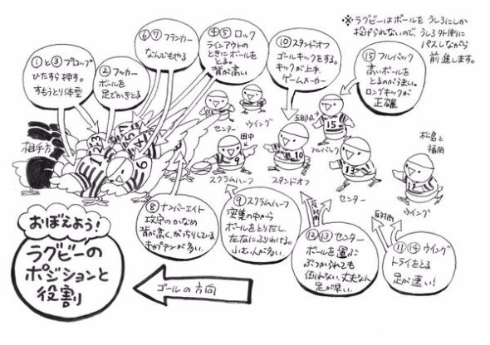 ※ラグビーはボールをうしろにしか
投げられないので、うしろ外側に
パスしながら
前進します。
①と③プロップ
ひたすら押す。
すもうとり体型
②フッカー
ボールを
足でかきとる
⑥⑦フランカー
なんでもやる
④⑤ロック
ラインアウトの
ときにボールを
とる。
背が高い
⑩スタンドオフ
ゴールキックをする。
キックが上手
ゲームメーカー
⑮フルバック
高いボールを
とるのが強い。
ロングキックが
正確
相手方
センター
ウイング
田中
スクラムハーフ
スタンドオフ
五郎丸
フルバック
センター
松島と
福岡
ウイング
⑧ナンバーエイト
攻定のかなめ
背が高くがっちりしている
⑨スクラムハーフ
密集の中から
ボールをとりだし、
左右にふりわける。
小さい人が多い。
⑫⑬センター
ボールを運ぶ
ぶつかられても
倒れない丈夫な人
足が早い。
⑪⑭ウイング
トライをとる
足が速い!
おぼえよう!
ラグビーの
ポジションと
役割
ゴールの方向